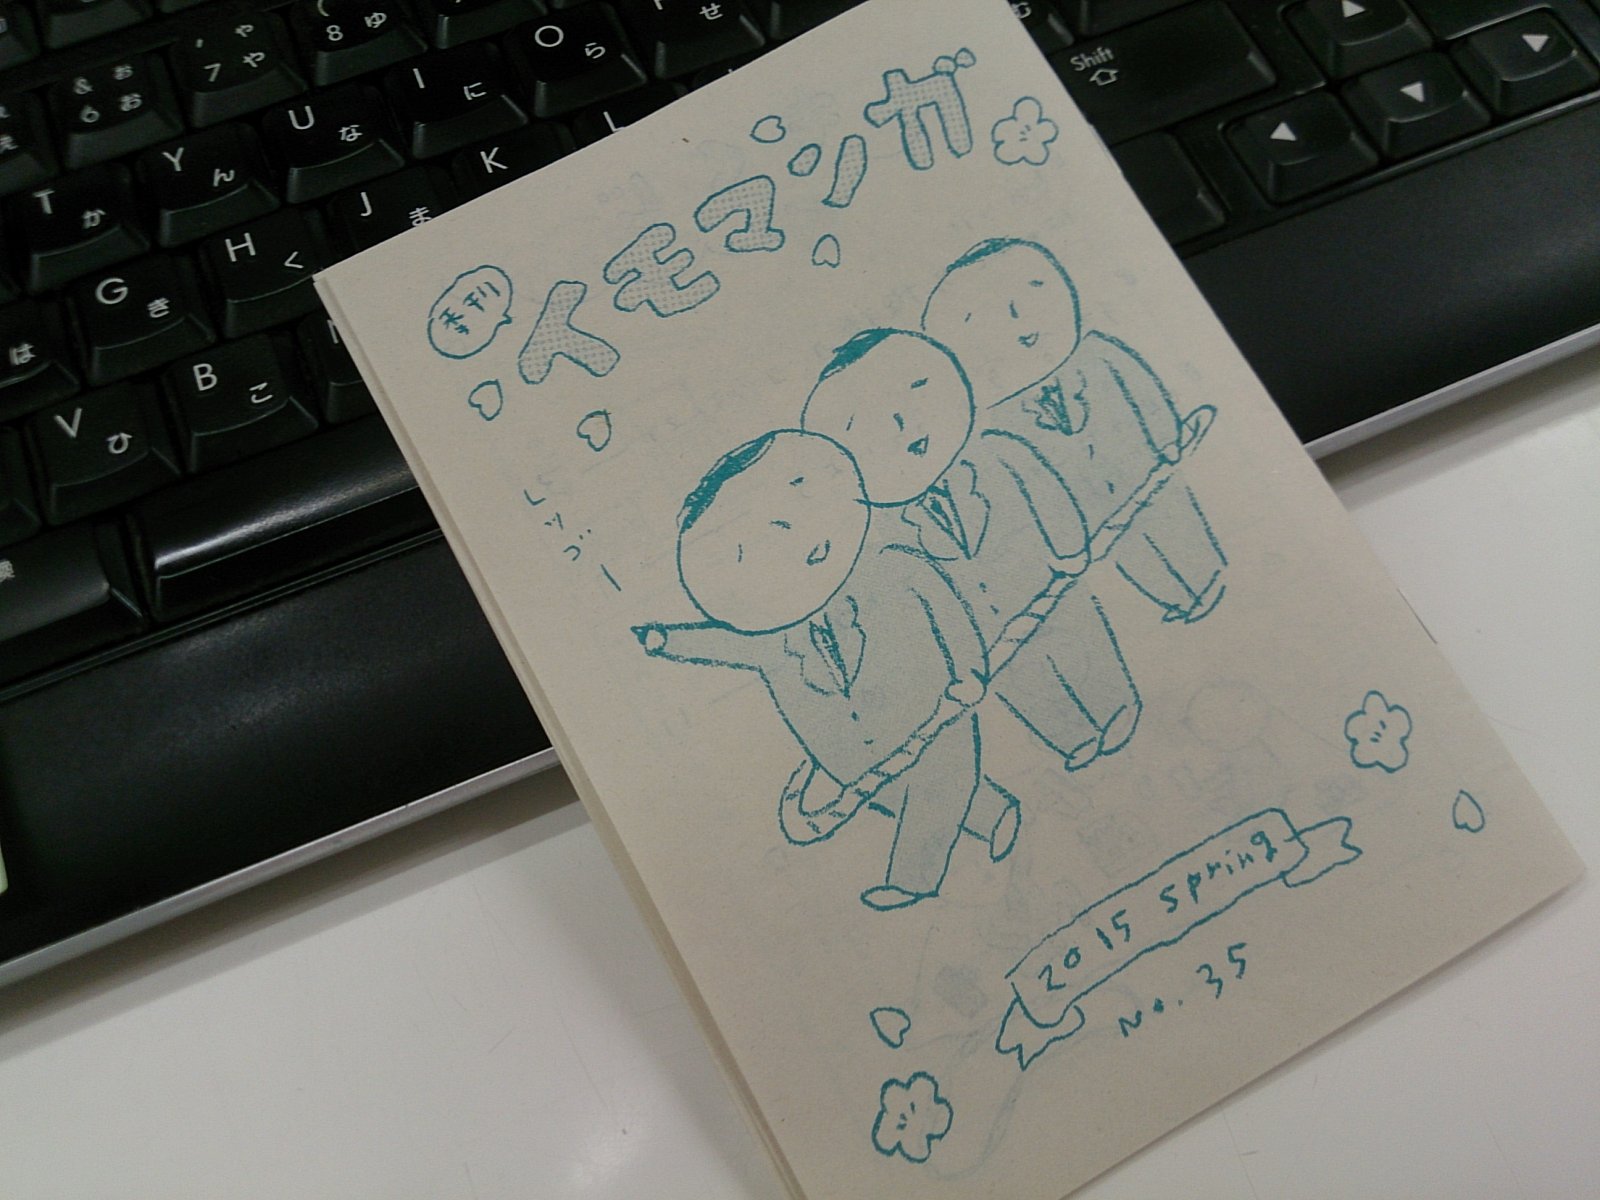 季刊
イモマンガ
レッゴー
2015 spring
No. 35
& お
6 お
' や
7 や
( ゆ
8 ゆ
せ
T か
Y ん
U な
I に
O ら
G き
H く
J ま
K
L
V ひ
B こ
は
Shift